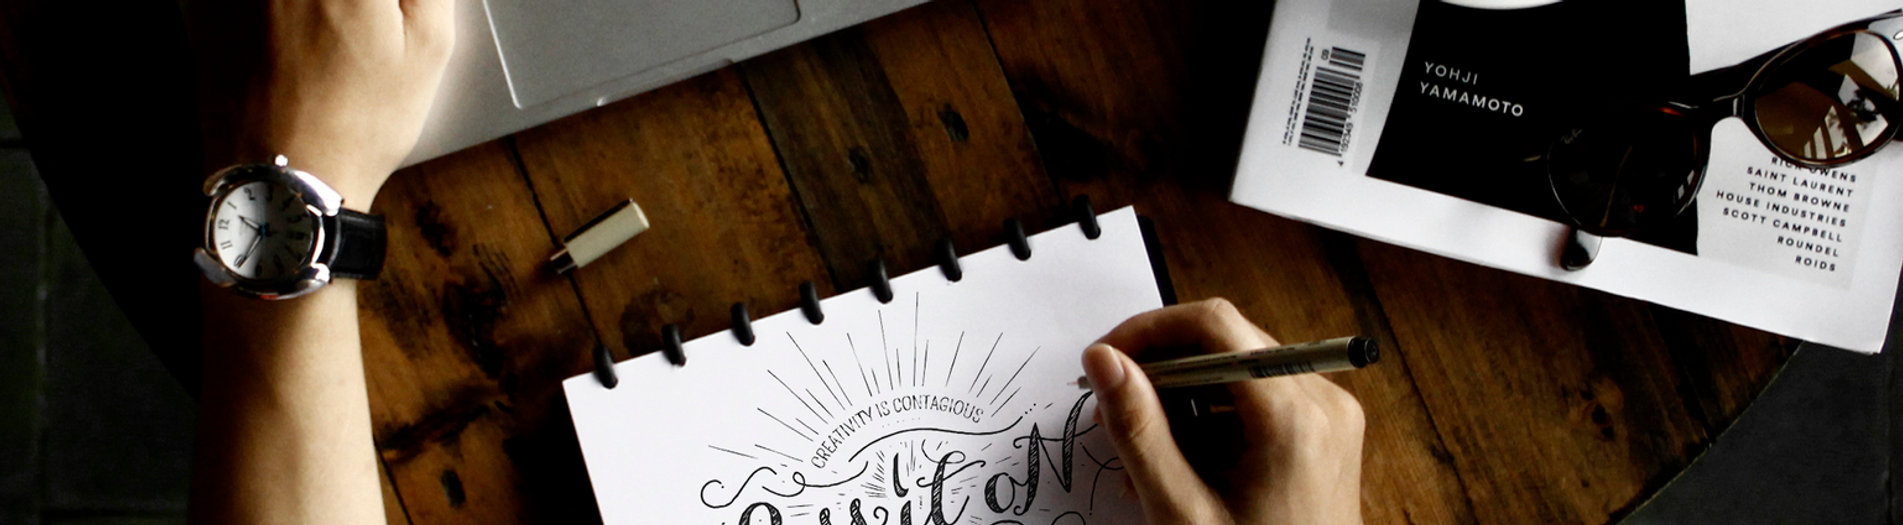 YOHJI
YAMAMOTO
RICK OWENS
SAINT LAURENT
THOM BROWNE
HOUSE INDUSTRIES
SCOTT CAMPBELL
ROUNDEL
ROIDS
CREATIVITY IS CONTAGIOUS
it oN
12
11